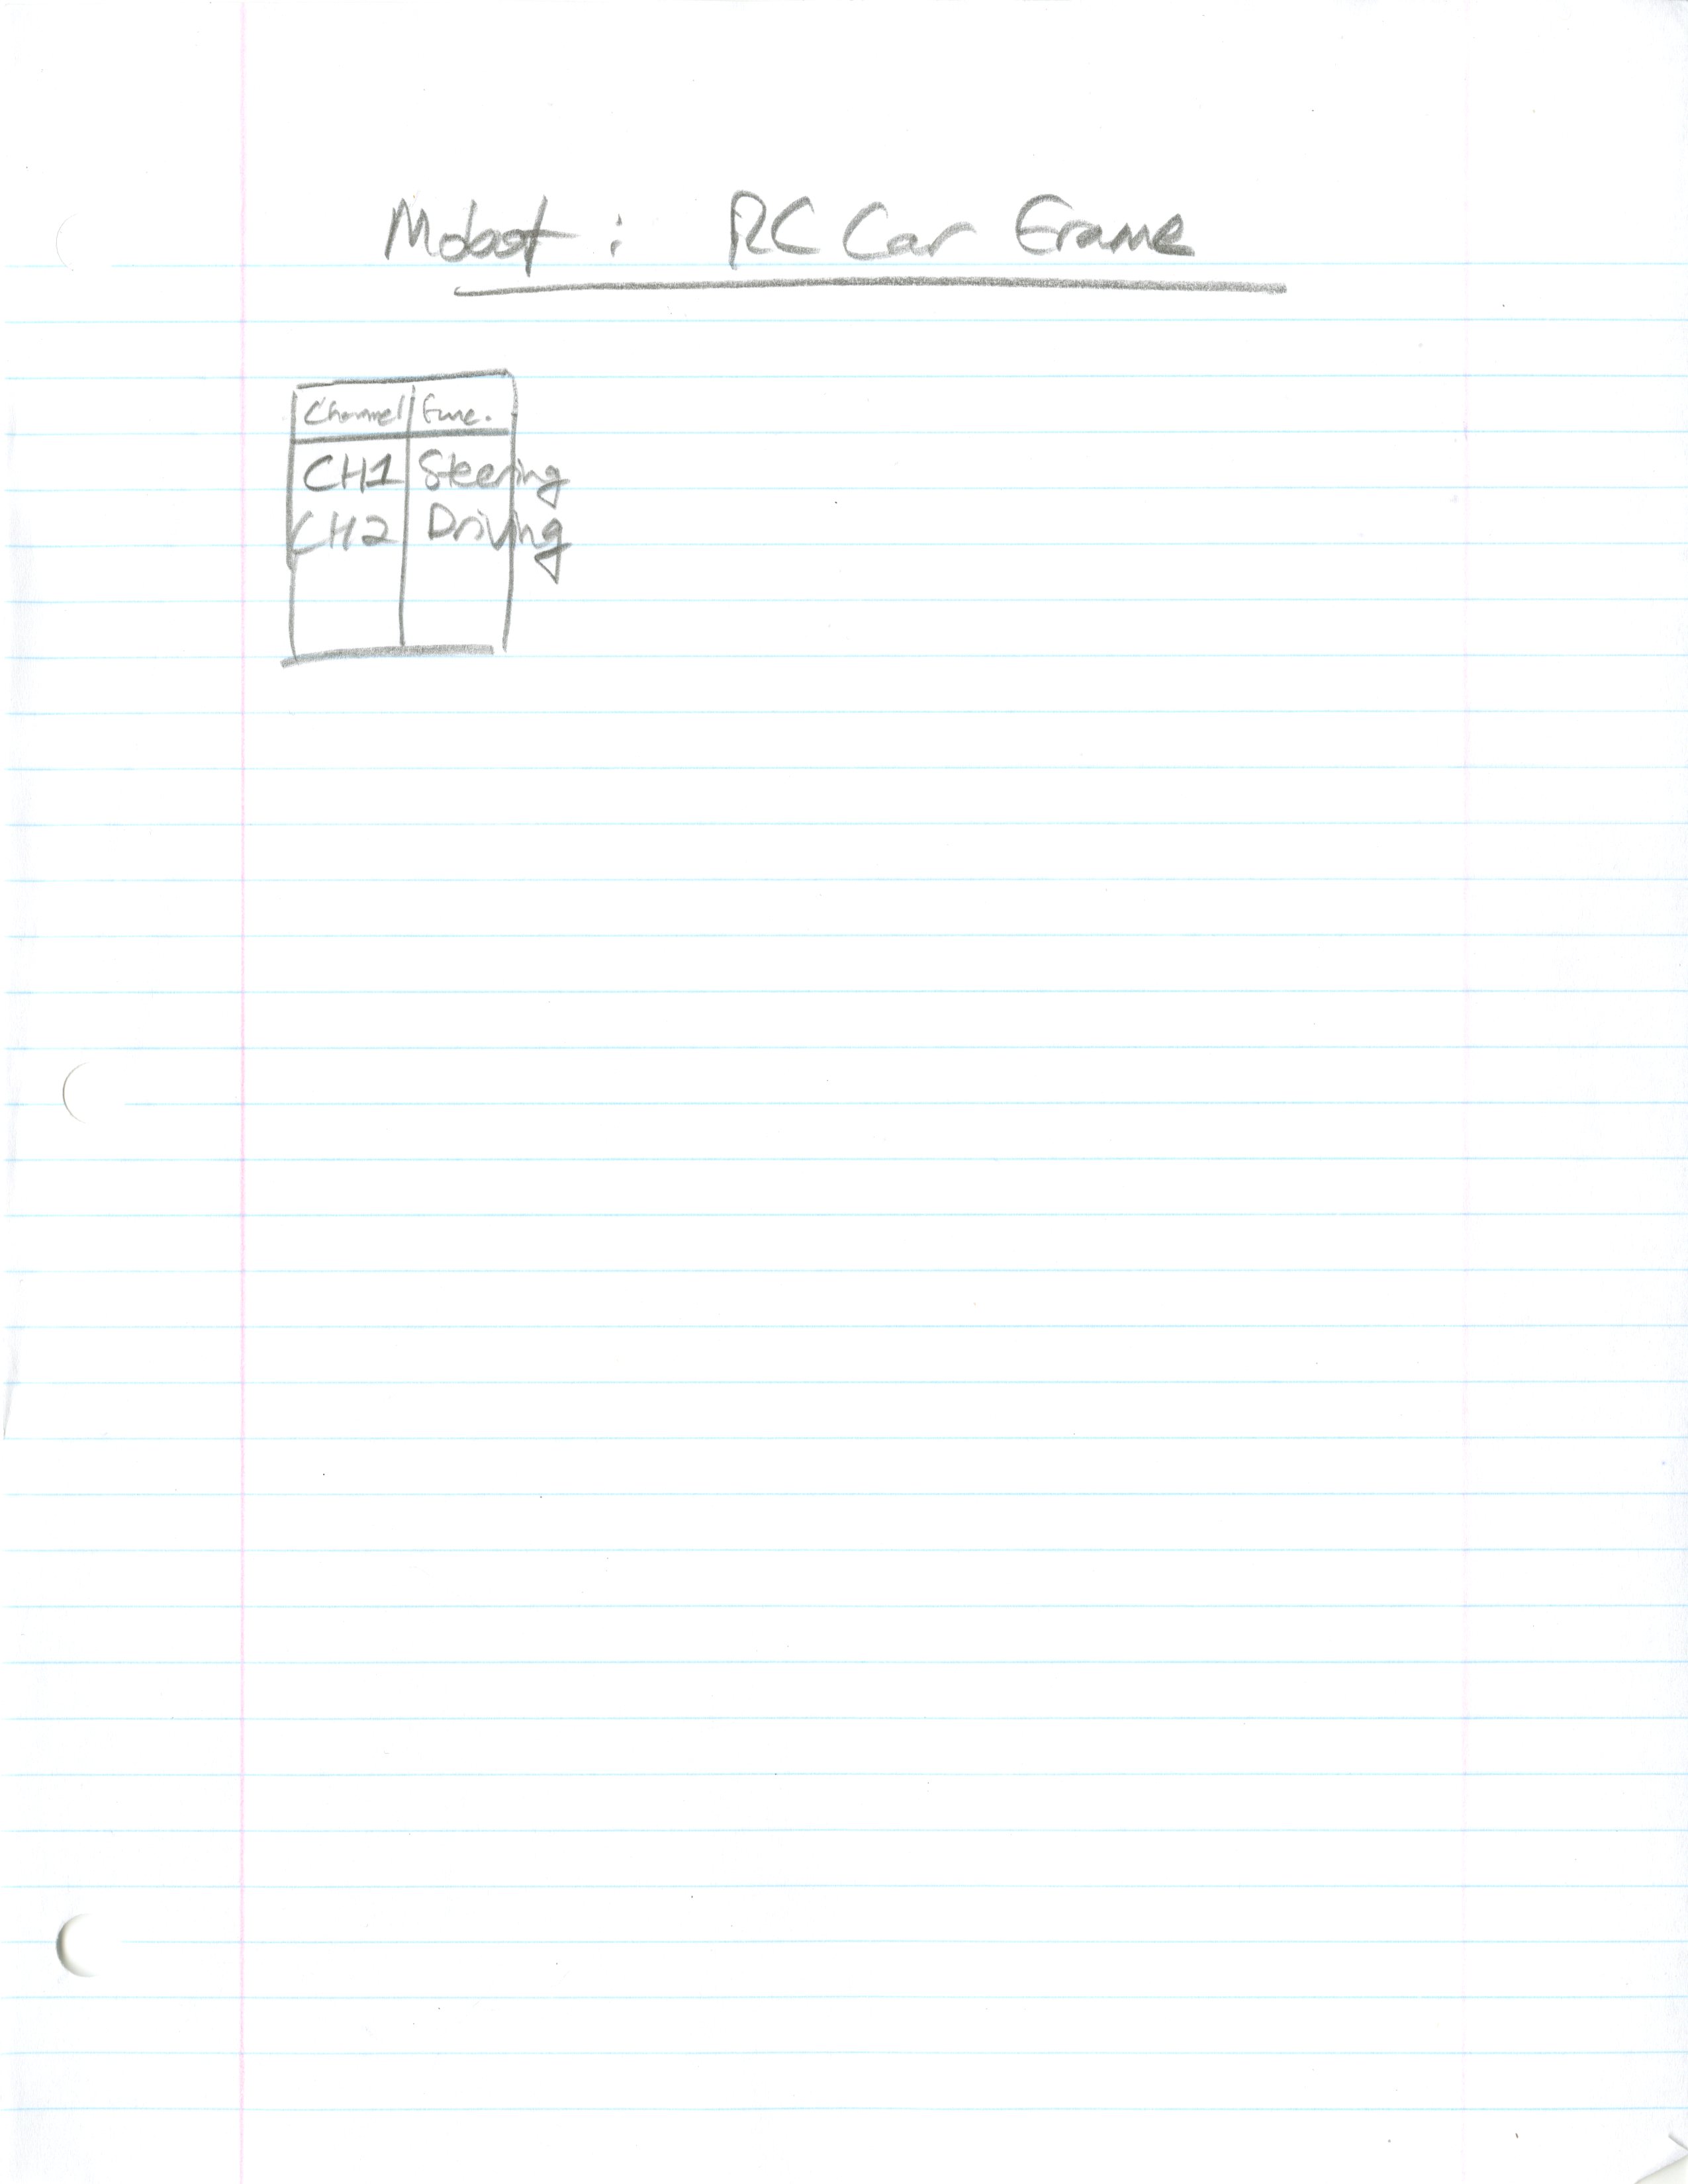 Mobot: RC Car Frame
Channel Func.
CH1 Steering
CH2 Driving